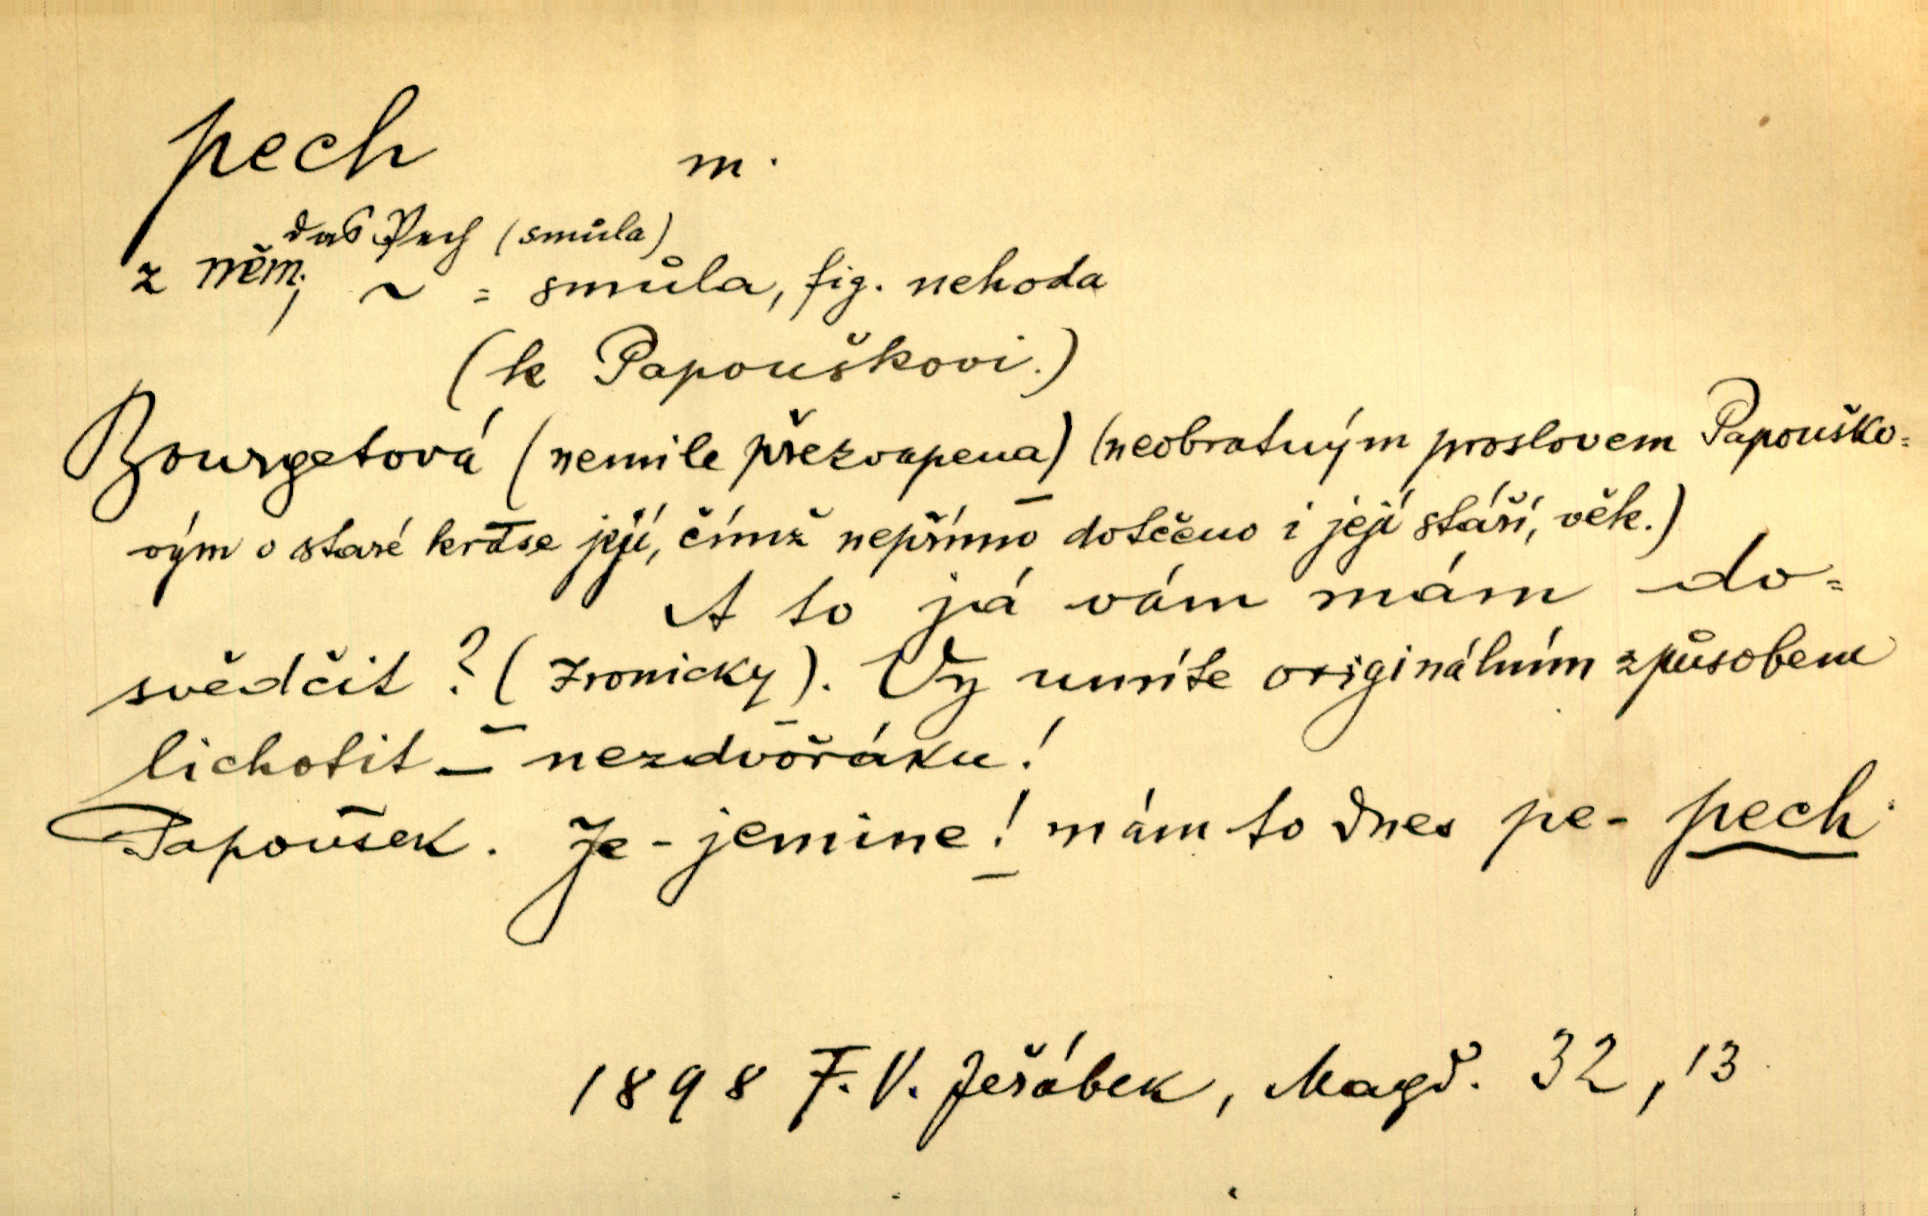 pech m.
das Pech (smůla)
z něm; ~ = smůla, fig. nehoda
(k Papouškovi.)
Bourgetová (nemile překvapena) (neobratným proslovem Papouško=
vým o staré kráse její, čímž nepřímo dotčeno i její stáří, věk.)
A to já vám mám do=
svědčit? (Ironicky). Vy umíte originálním způsobem
lichotit – nezdvořáku!
Papoušek. Je-jemine! mám to dnes pe- pech.
1898 F. V. Jeřábek, Magd. 32, 13